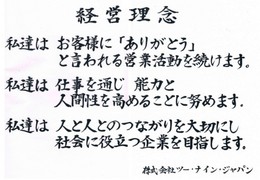 経営理念
私達は お客様に「ありがとう」
と言われる営業活動を続けます。
私達は 仕事を通じ 能力と
人間性を高めることに努めます.
私達は 人と人とのつながりを大切にし
社会に役立つ企業を目指します.
株式会社ツー・ナイン・ジャパン